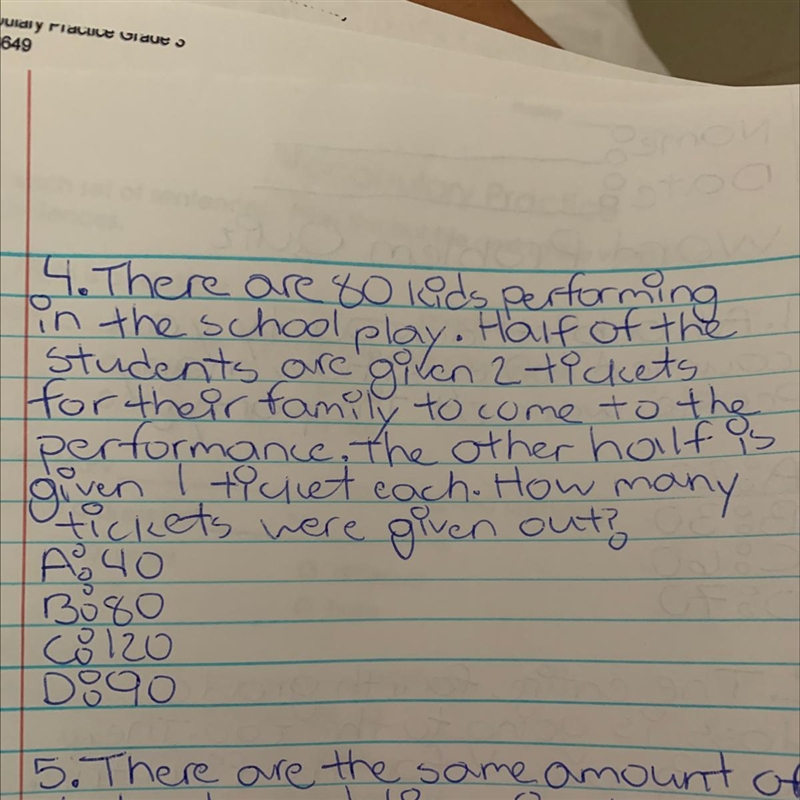 Practice Grade 3
649
4. There are 80 kids performing
in the school play. Half of the
students are given 2 tickets
for their family to come to the
performance. The other half is
given 1 ticket each. How many
tickets were given out?
A: 40
B: 80
C: 120
D: 90
5. There are the same amount of